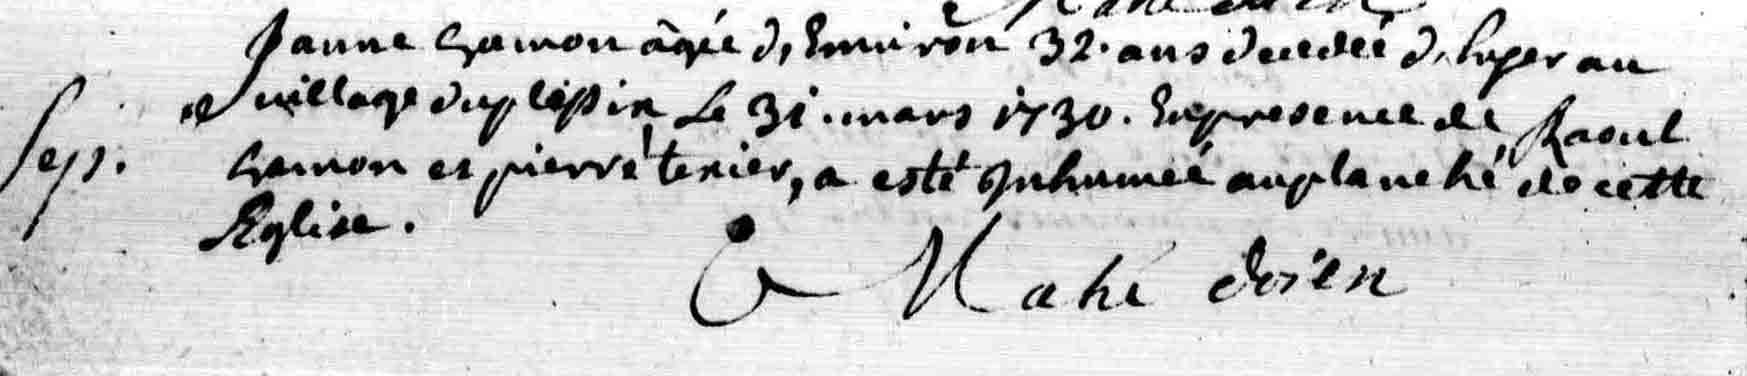 Janne Gamon âgée d'Environ 32. ans decedeé d'hyer au
village duplessix Le 31. mars 1730. Enpresence de Raoul
Sep. Gamon et pierre texier, a esté Inhumeé auplanché de cette
Eglise.
Mahé doïen